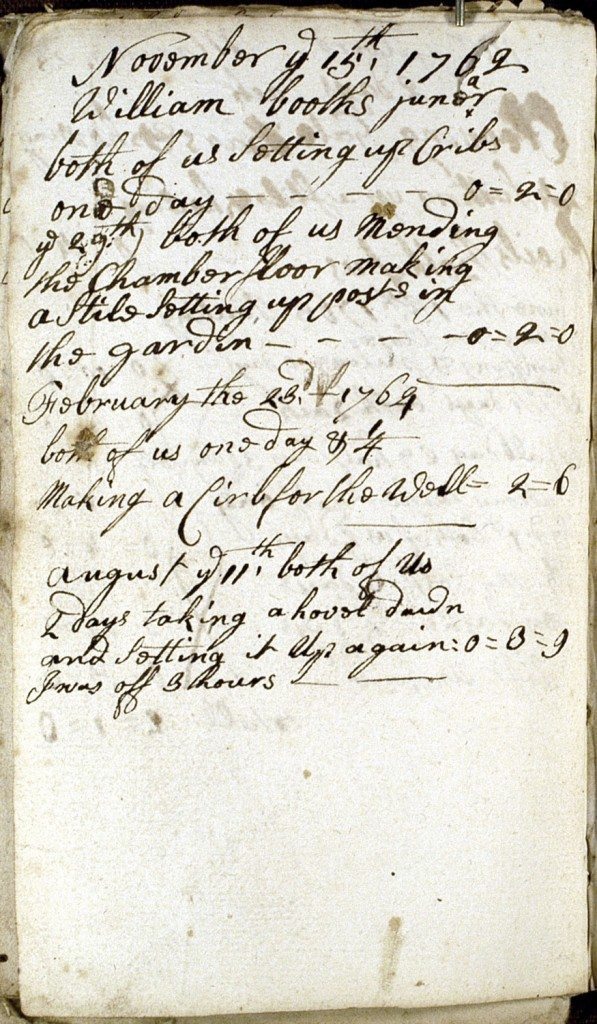 November ye 15th: 1762
William booths junear
both of us Setting up Cribs
one day — — — — 0=2=0
ye 29th:) both of us Mending
the Chamber floor making
a Stile Setting up posts in
the gardin — — — — 0=2=0
February the 23d: 1764
both of us one day & 1/4
Making a Cirb for the Well= 2=6
august ye 11th: both of Us
2 days taking a hovel dwdn
and Setting it Up again: 0=3=9
I was off 3 hours